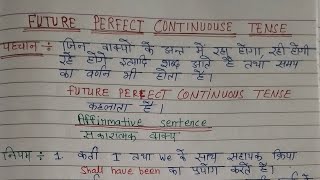 FUTURE PERFECT CONTINUOUSE TENSE
पहचान ÷ जिन वाक्यों के अन्त में रहा होगा, रही होगी
रहे होंगे इत्यादि शब्द आते हैं तथा समय
का वर्णन भी होता है।
FUTURE PERFECT CONTINUOUS TENSE
कहलाता है।
Affirmative sentence
सकारात्मक वाक्य
नियम ÷ 1. कर्ता I तथा We के साथ सहायक क्रिया
Shall have been का प्रयोग करते हैं।